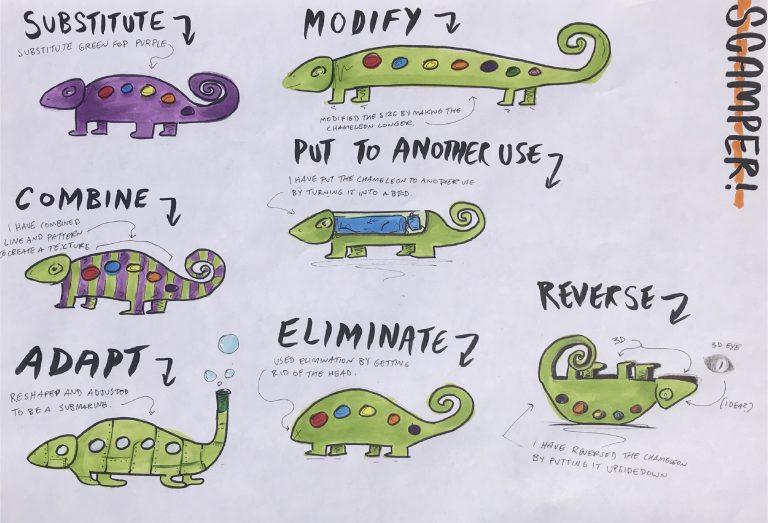 SCAMPER!
SUBSTITUTE
SUBSTITUTE GREEN FOR PURPLE
COMBINE
I HAVE COMBINED
LINE AND PATTERN
TO CREATE A TEXTURE
ADAPT
RESHAPED AND ADJUSTED
TO BE A SUBMARINE.
MODIFY
MODIFIED THE SIZE BY MAKING THE
CHAMELEON LONGER.
PUT TO ANOTHER USE
I HAVE PUT THE CHAMELEON TO ANOTHER USE
BY TURNING IT INTO A BED.
ELIMINATE
USED ELIMINATION BY GETTING
RID OF THE HEAD.
REVERSE
3D
3D EYE
(IDEA?)
I HAVE REVERSED THE CHAMELEON
BY PUTTING IT UPSIDEDOWN